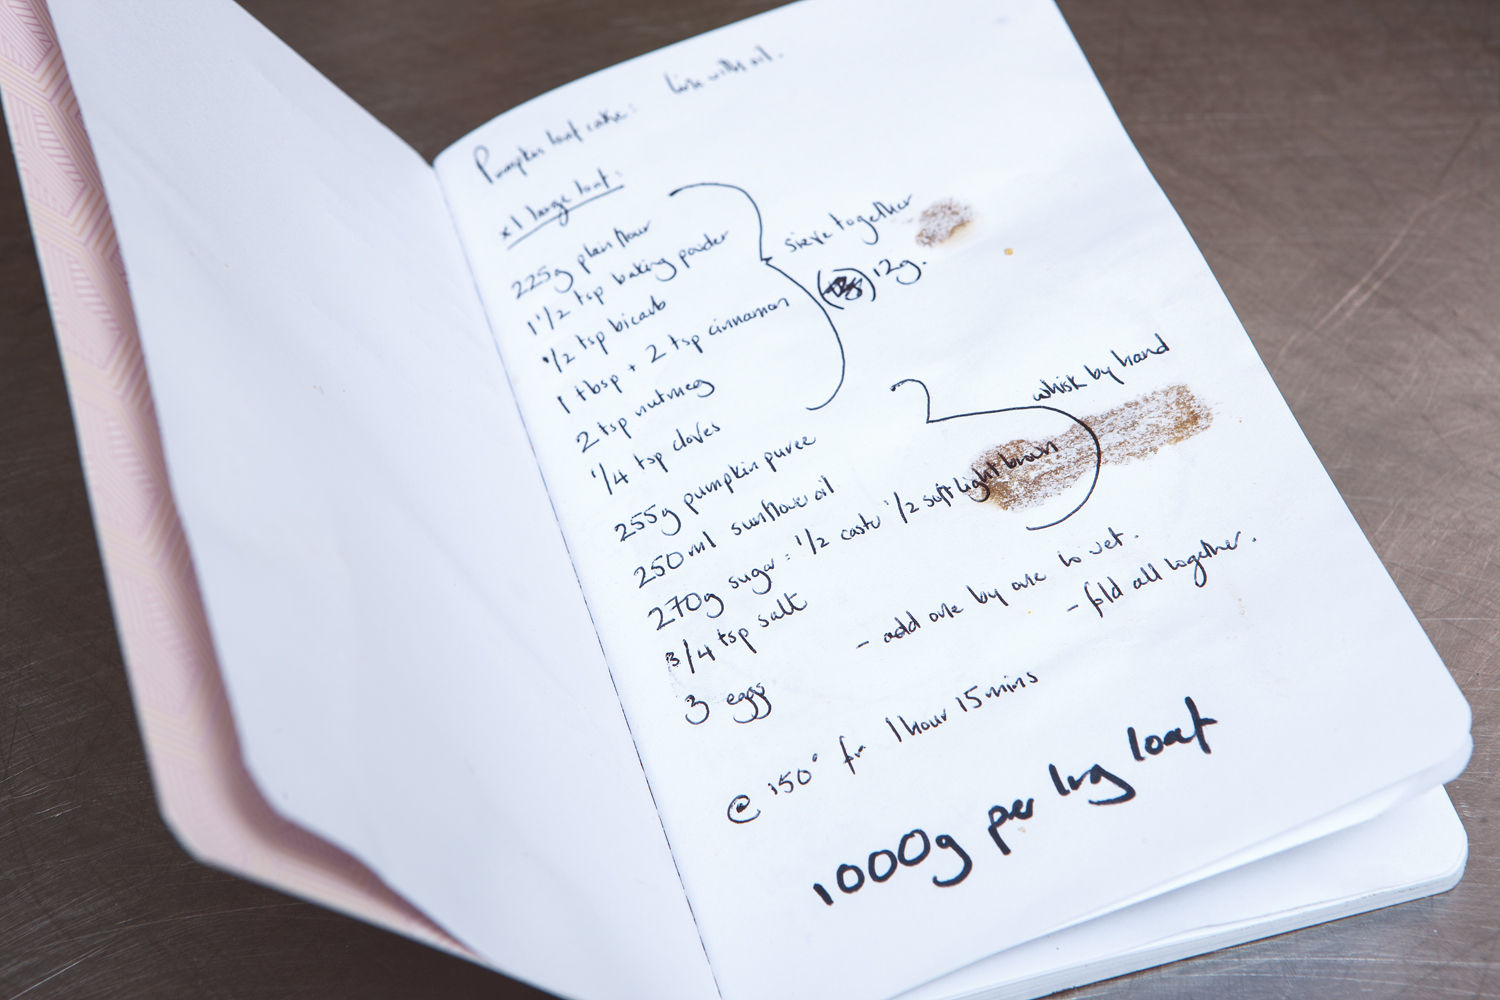 Pumpkin loaf cake: line with oil.
x1 large loaf:
225g plain flour
1 1/2 tsp baking powder
sieve together
1/2 tsp bicarb
1 tbsp + 2 tsp cinnamon () 12g.
2 tsp nutmeg
1/4 tsp cloves
255g pumpkin puree
whisk by hand
250ml sunflower oil
270g sugar = 1/2 caster 1/2 soft light brown
3/4 tsp salt
3 eggs - add one by one to wet.
- fold all together.
@ 150° for 1 hour 15 mins
1000g per lrg loaf